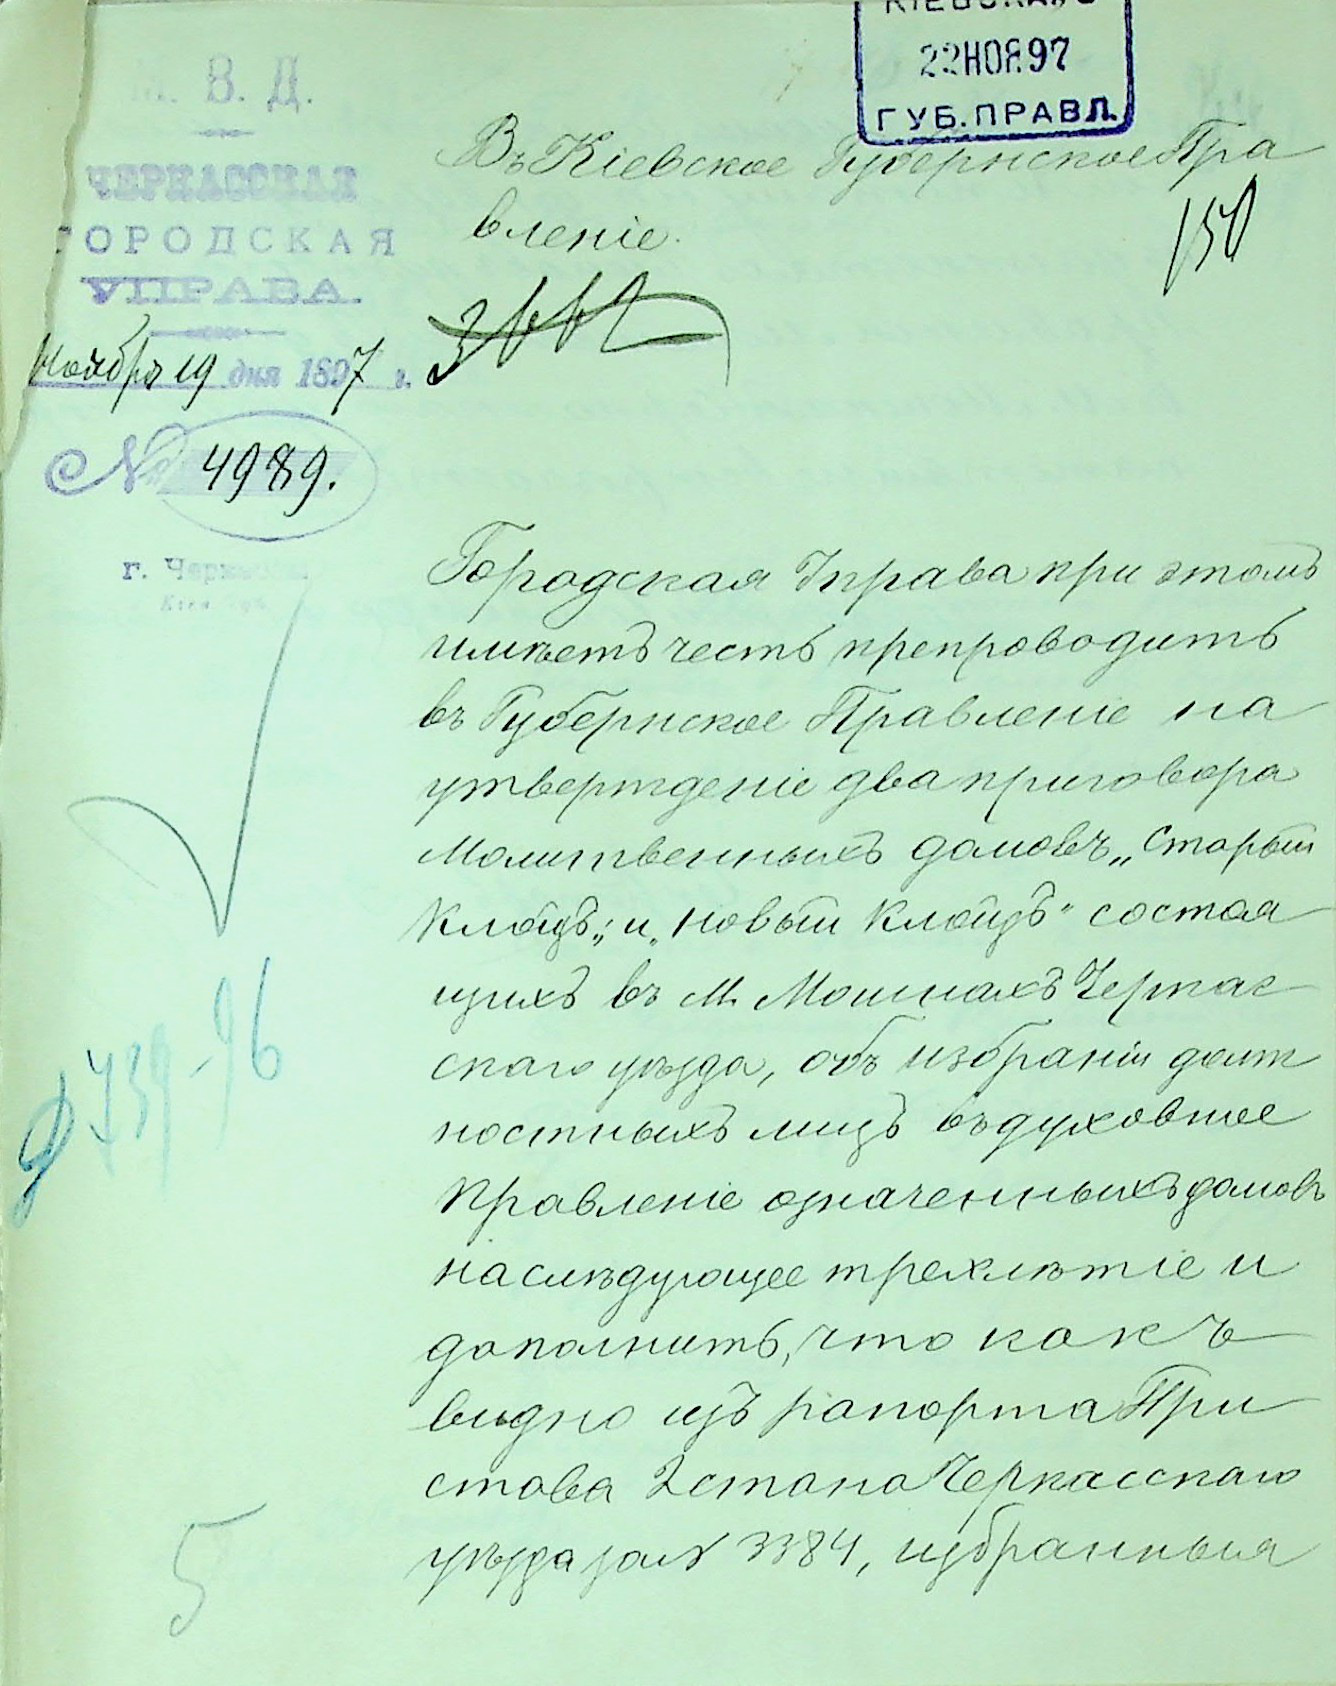 КІЕВСКАГО
22 НОЯ 97
ГУБ. ПРАВЛ.
М. В. Д.
ЧЕРКАССКАЯ
ГОРОДСКАЯ
УПРАВА.
Ноября 19 дня 1897 г.
№ 4989.
г. Черкассы.
Кіев. губ.
Въ Кіевское Губернское Пра
вленіе.
150
Городская Управа при этомъ
имѣетъ честь препроводить
въ Губернское Правленіе на
утвержденіе два приговора
Молитвенныхъ домовъ „Старый
Клойзъ„ и „Новый Клойзъ“ состоя
щихъ въ М. Мошнахъ Черкас
скаго уѣзда, объ избраніи долж
ностныхъ лицъ въ духовное
Правленіе означенныхъ домовъ
на слѣдующее трехлѣтіе и
дополнить, что какъ
видно изъ рапорта При
става 2 стана Черкасскаго
уѣзда за № 3384, избранныя
739-96
5